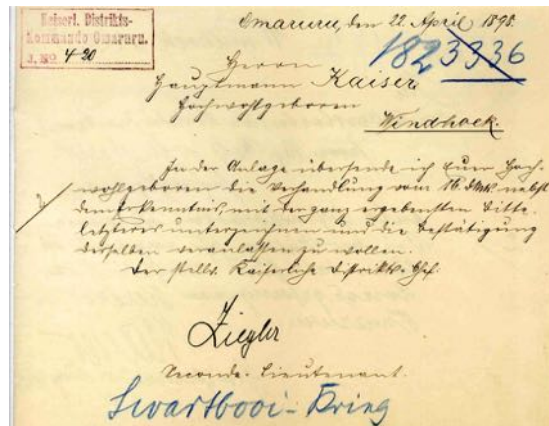 Kaiserl. Distrikts-
Kommando Omaruru.
J. No. 420
Omaruru, den 22. April 1898.
182 3336
Herrn
Hauptmann Kaiser
Hochwohlgeboren
Windhoek.
In der Anlage übersende ich Euer Hoch-
wohlgeboren die Verhandlung vom 16. d. Mts. nebst
dem Erkenntnis, mit der ganz ergebensten Bitte
letzteres unterzeichnen und die Bestätigung
desselben veranlassen zu wollen.
Der stellv. Kaiserliche Distrikts-Chef.
Ziegler
Seconde-Lieutenant.
Swartbooi-Krieg